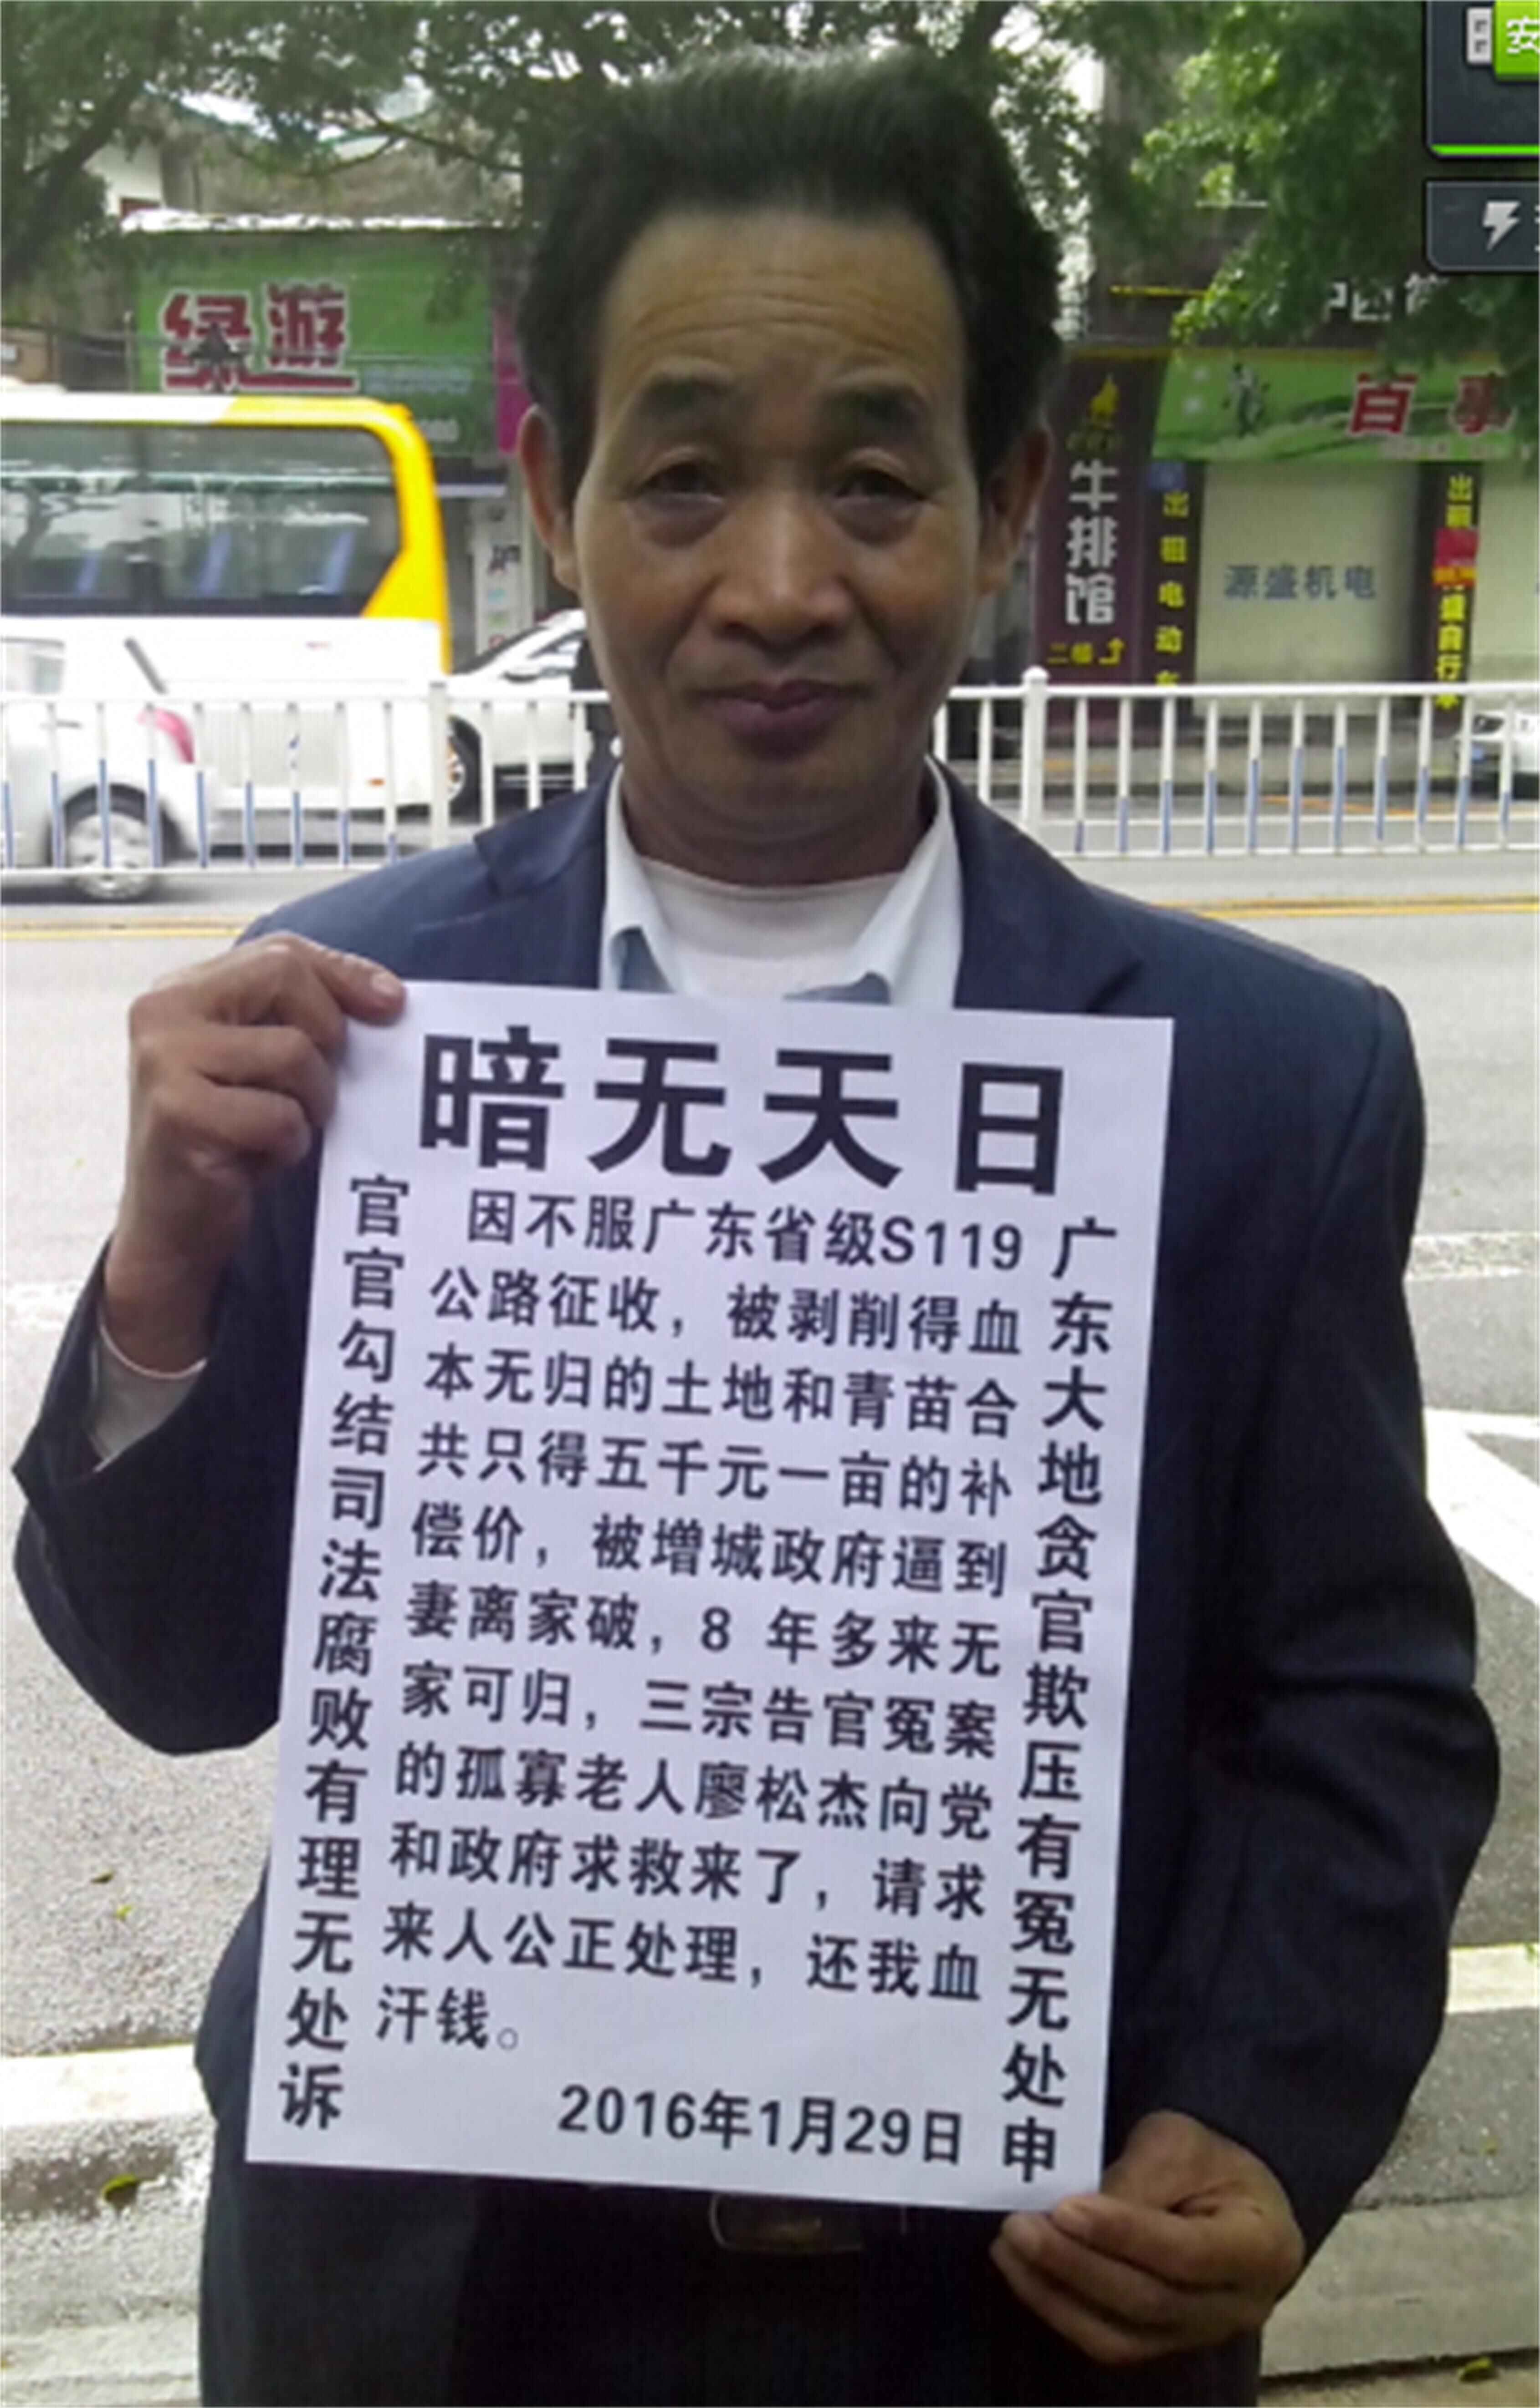 绿游
安
牛排馆
二楼
出租电动车
百事
源盛机电
暗无天日
官官勾结司法腐败有理无处诉
因不服广东省级S119
公路征收，被剥削得血
本无归的土地和青苗合
共只得五千元一亩的补
偿价，被增城政府逼到
妻离家破，8 年多来无
家可归，三宗告官冤案
的孤寡老人廖松杰向党
和政府求救来了，请求
来人公正处理，还我血
汗钱。
2016年1月29日
广东大地贪官欺压有冤无处申